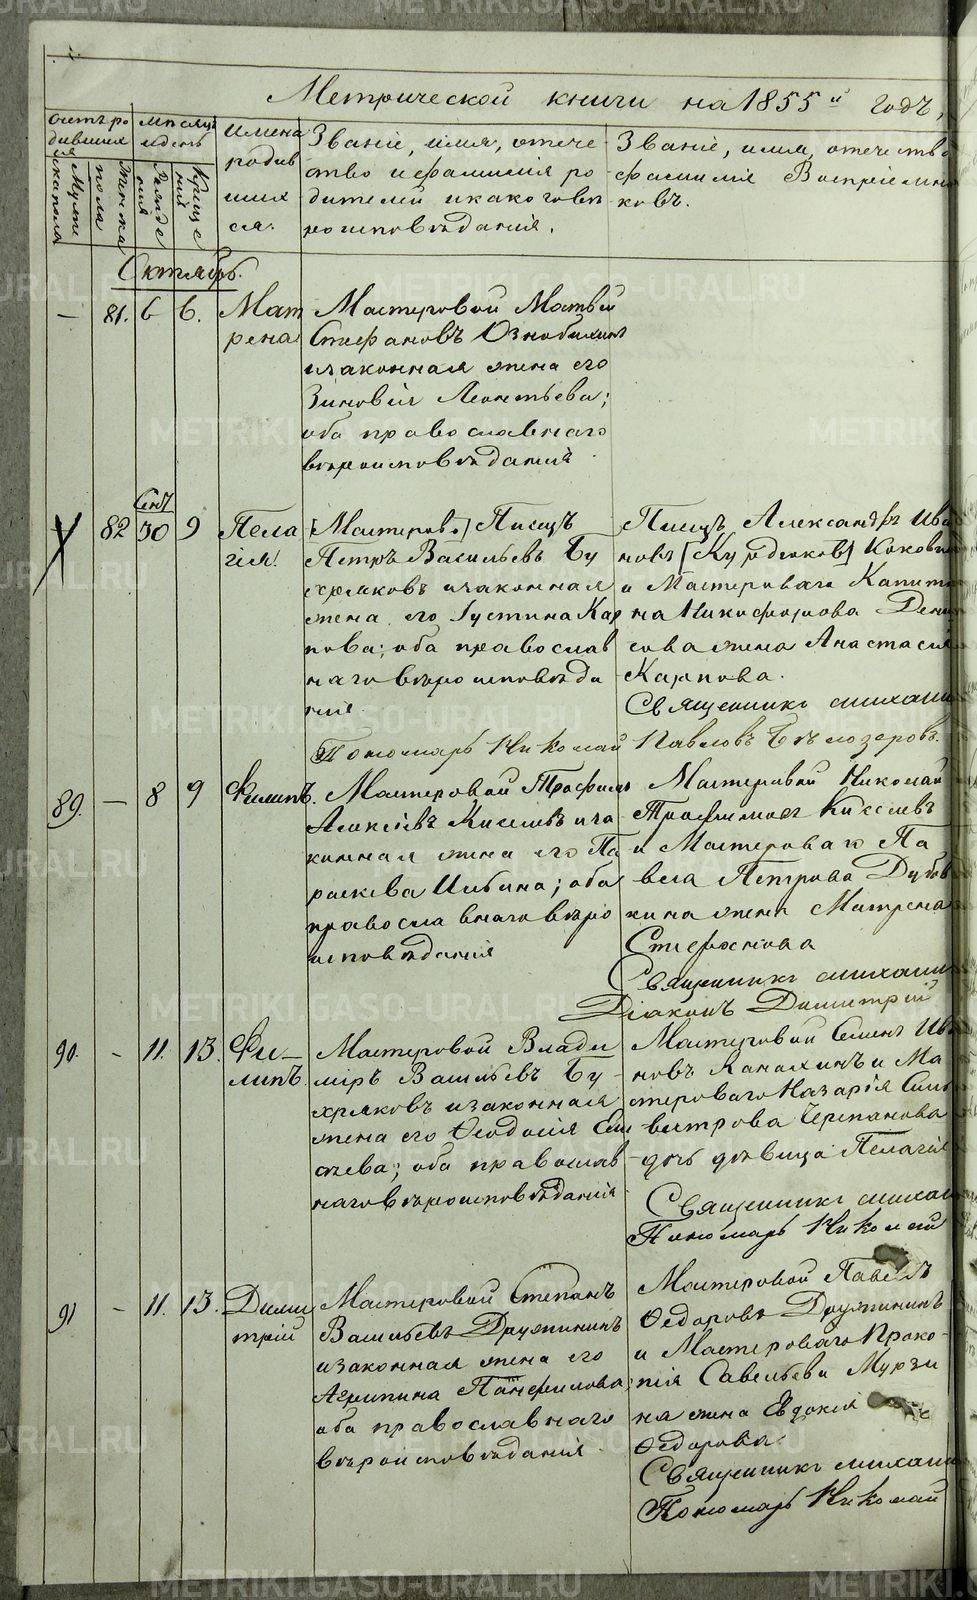 Метрической книги на 1855й годъ,
Счетъ ро
дившихся
Мужеска пола
Женска пола
Мѣсяцъ
и день
Рожде
ния
Креще
ний
Имена
родив
ших
ся.
Званіе, имя, отече
ство и фамилія ро
дителей и какого вѣ
роисповѣданія.
Званіе, имя, отечество
фамилія Воспріемни
ковъ.
Октябрь.
— 81. 6 6.
Мат
рена
Мастеровой Матвѣй
Стефановъ Ознобихинъ
и законная жена его
Зиновія Леонтьева;
оба православнаго
вѣроисповѣданія.
Сент
82 30 9
Пела
гія.
[Мастеров.] Писецъ
Петръ Васильевъ Бу
хряковъ и законная
жена его Іустина Кар
пова; оба православ
наго вѣроисповѣда
нія.
Писецъ Александръ Ива
новъ Коковин
и Мастероваго Капито
на Никифорова Дени
сова жена Анастасия
Карпова.
Священникъ Михаил
Пономарь Николай Павловъ Бѣлозеровъ.
89. — 8 9
Филипъ.
Мастеровой Трофимъ
Алексѣевъ Киселевъ и за
конная жена его Па
раскева Ильина; оба
православнаго вѣро
исповѣданія
Мастеровой Николай
Трофимовъ Киселевъ
и Мастероваго Па
вла Петрова Дубов
кина жена Матрена
Стефанова
Священникъ Михаил
Діаконъ Димитрій
90. – 11. 13.
Фи–
липъ.
Мастеровой Влади
міръ Васильевъ Бу
хряковъ и законная
жена его Ѳеодосія Сы
соева; оба православ
наго вѣроисповѣданія
Мастеровой Семенъ Ива
новъ Канахинъ и Ма
стероваго Назарія Силь
вестрова Черепанова
дочь дѣвица Пелагія
Священникъ Михаил
Пономарь Николай
91 – 11. 13.
Дими
трій
Мастеровой Степанъ
Васильевъ Дружининъ
и законная жена его
Агрипина Панфилова;
оба православнаго
вѣроисповѣданія.
Мастеровой Павелъ
Ѳедоровъ Дружининъ
и Мастероваго Проко-
пія Савельева Мурзи
на жена Евдокія
Ѳедорова.
Священникъ Михаил
Пономарь Николай
METRIKI.GASO-URAL.RU